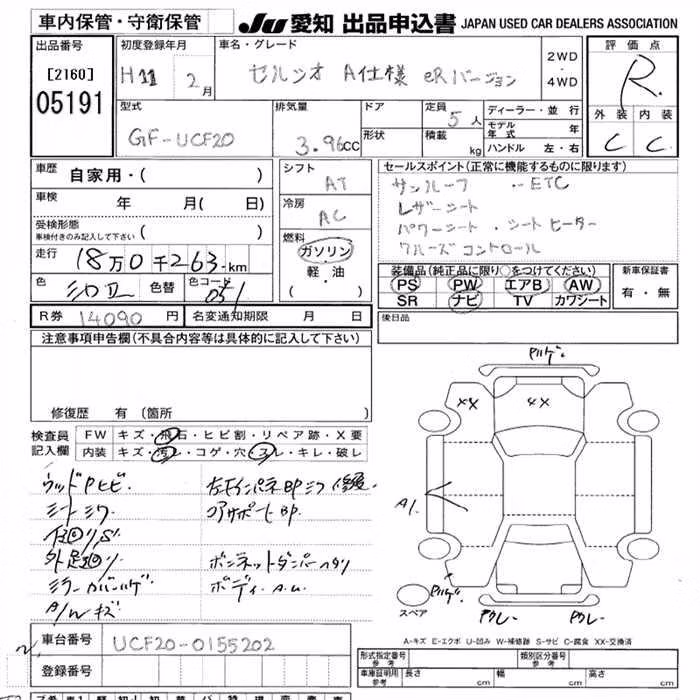 車内保管・守衛保管
JU 愛知 出品申込書 JAPAN USED CAR DEALERS ASSOCIATION
出品番号
[2160]
05191
初度登録年月
H11 2月
車名・グレード
セルシオ A仕様 eRバージョン
2WD
4WD
評価点
R
外装 内装
C C
型式
GF-UCF20
排気量
3.96cc
ドア
形状
定員 5人
積載 kg
ディーラー・並行
モデル年式 年
ハンドル 左・右
車歴 自家用・( )
車検 年 月( 日)
受検形態
車検付きのみ記入して下さい ( )
走行 18万0千263km
色 シロII 色替 色コード 051
シフト
AT
冷房
AC
燃料
ガソリン
軽・油
( )
セールスポイント(正常に機能するものに限ります)
サンルーフ ・・ETC
レザーシート
パワーシート ・シートヒーター
クルーズコントロール
装備品(純正品に限り○をつけてください)
PS PW エアB AW
SR ナビ TV カワシート
新車保証書
有・無
R券 14090円 名変通知期限 月 日
後日品
注意事項申告欄(不具合内容等は具体的に記入して下さい)
修復歴 有(箇所
検査員記入欄
FW キズ・飛石・ヒビ割・リペア跡・X要
内装 キズ・汚レ・コゲ・穴・スレ・キレ・破レ
ウッドPヒビ
シートシワ
下回リS
外足廻リ
ミラーカバーハゲ
A/Wキズ
左右インパネBPミフ修復・
コアサポートBP
ボンネットダンパーヘタリ
ボディ・A.U.
アルゲ・
XX
4X
A1
スペア
クレー
クレー
A-キズ E-エクボ U-凹み W-補修跡 S-サビ C-腐食 XX-交換済
車台番号 UCF20-0155202
登録番号
形式指定番号 参考
類別区分番号 参考
車庫証明用 参考
長さ cm
幅 cm
高さ cm